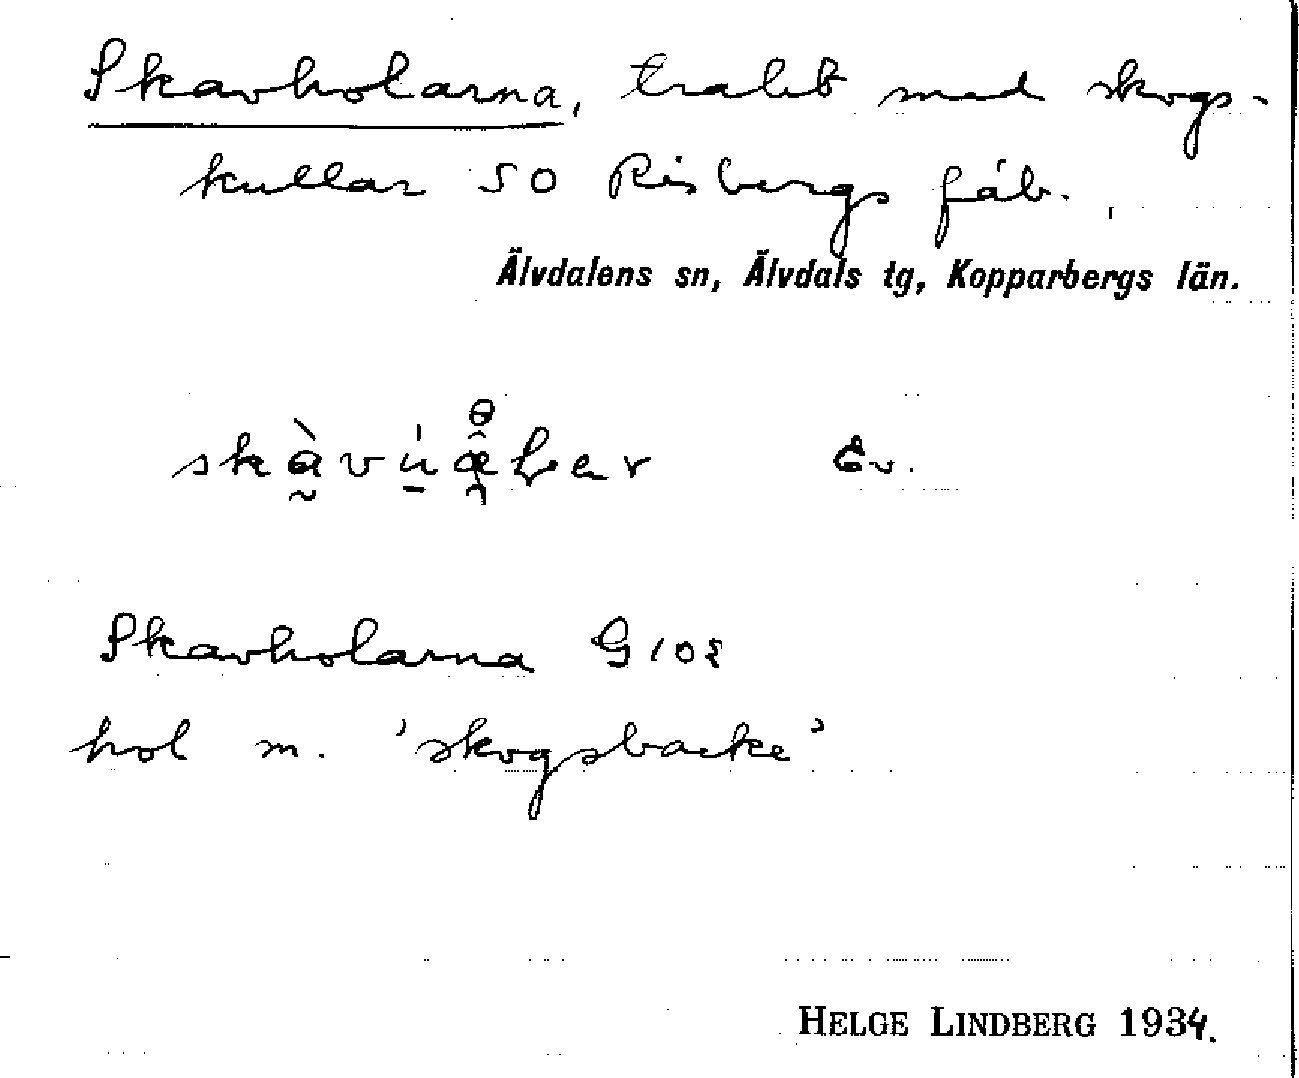 Skavholarna, trakt med skogs-
kullar SO Risbergs fäb.
Älvdalens sn, Älvdals tg, Kopparbergs län.
Ev.
Skavholarna G 102
hol m. 'skogsbacke'
HELGE LINDBERG 1934.